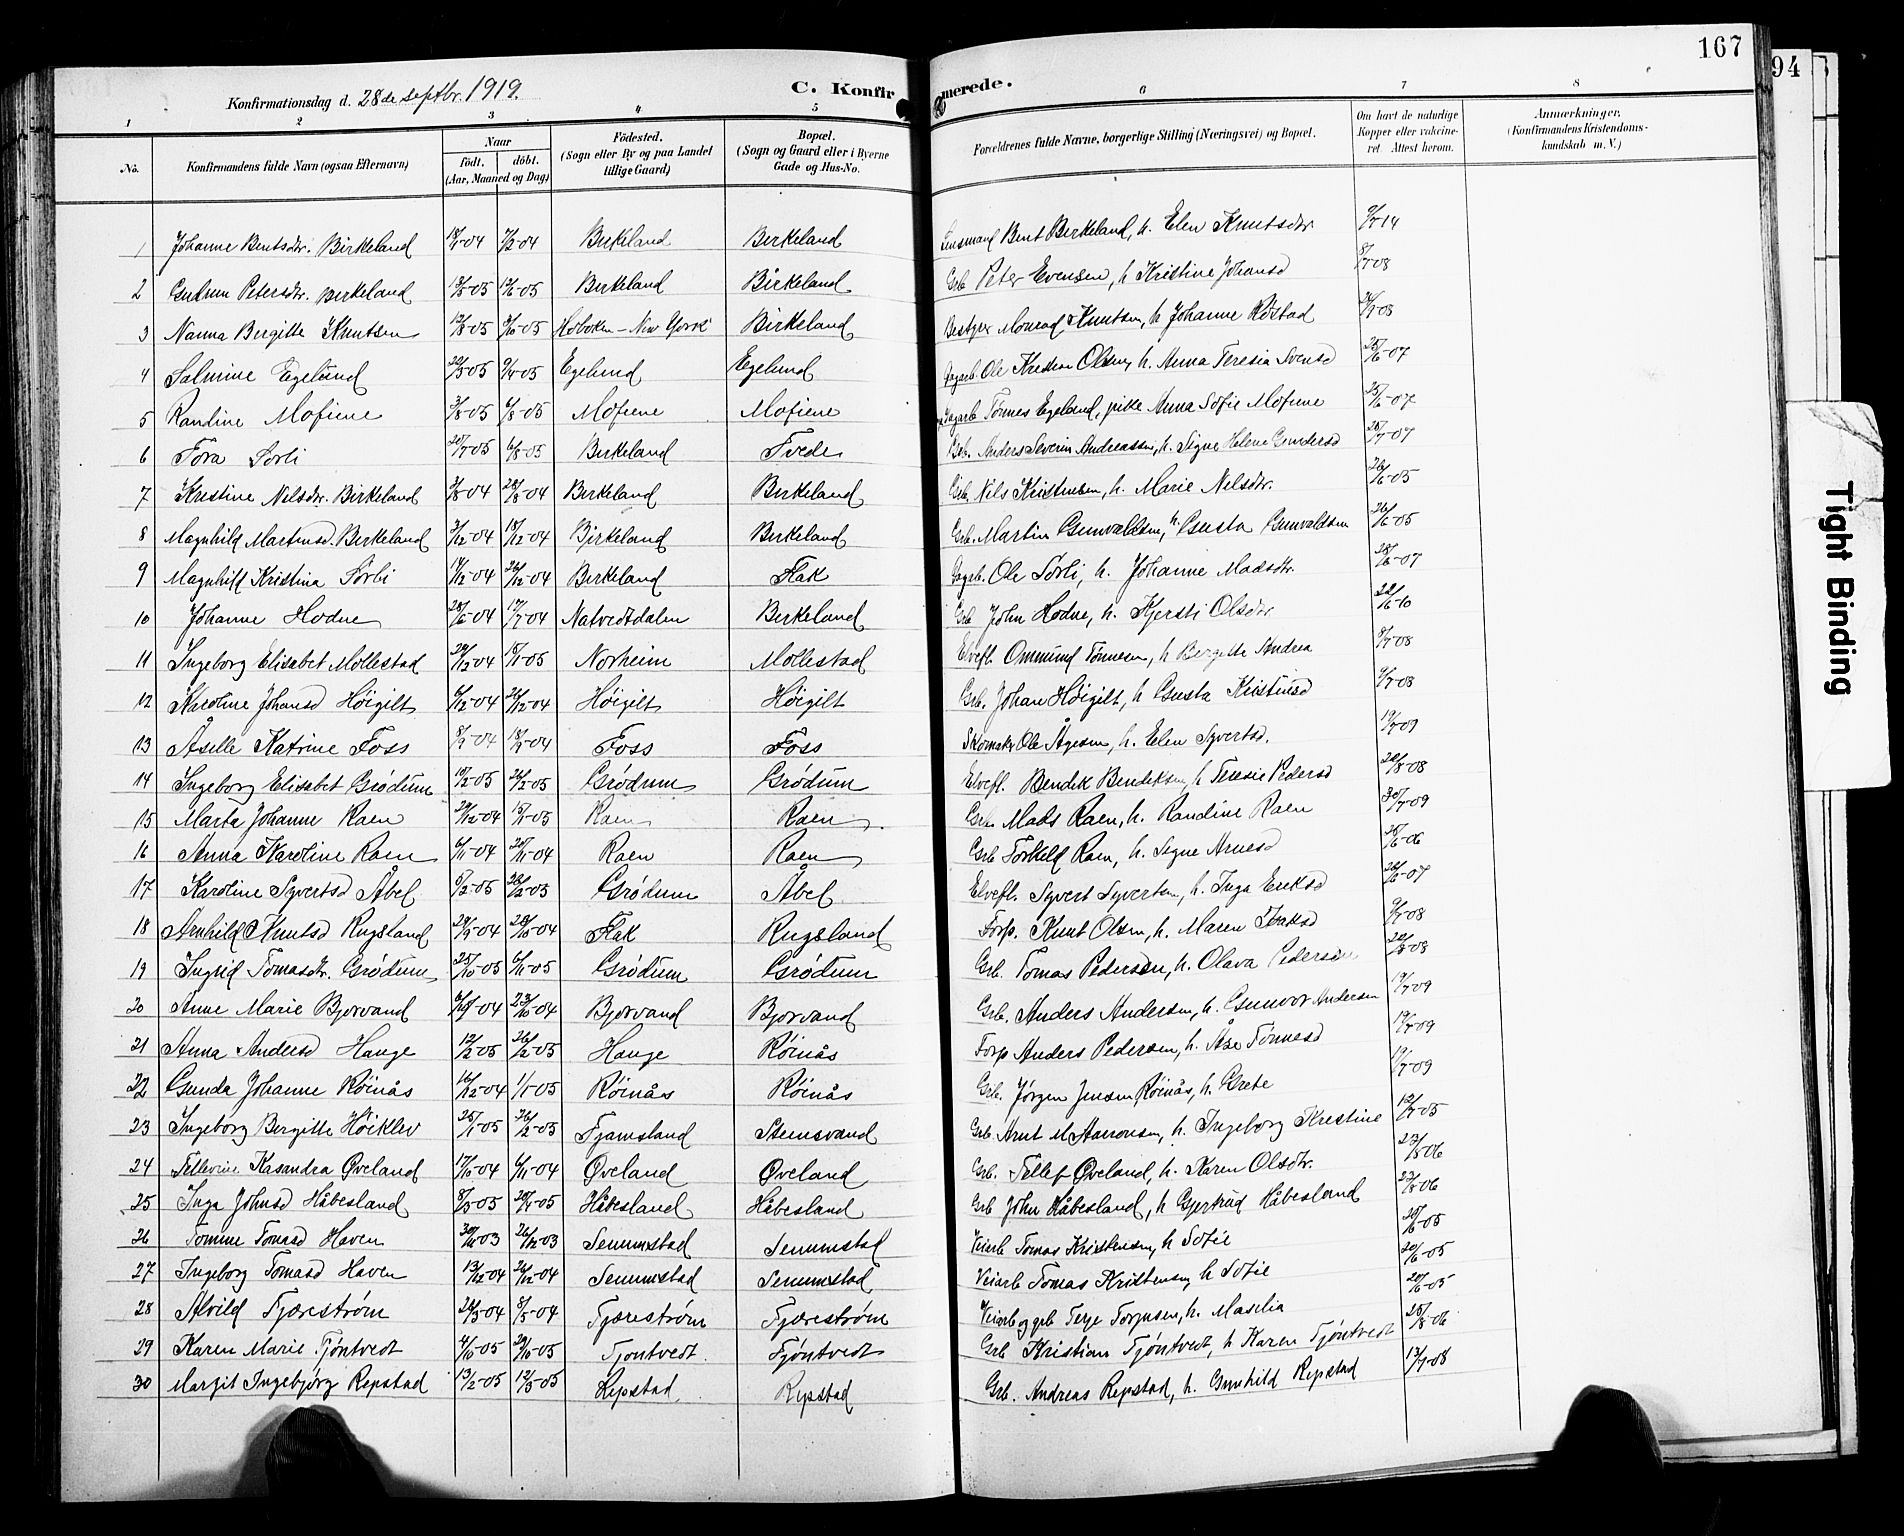 167
94
Konfirmationsdag d. 28de septbr. 1919.
C. Konfirmerede.
1 2 3 4 5 6 7 8
No. Konfirmandens fulde Navn (ogsaa Efternavn) Naar født. døbt. (Aar, Maaned og Dag) Fødested. (Sogn eller By og paa Landet tillige Gaard) Bopæl. (Sogn og Gaard eller i Byerne Gade og Hus-No. Forældrenes fulde Navne, borgerlige Stilling (Næringsvei) og Bopæl. Om havt de naturlige Kopper eller vakcineret. Attest herom. Anmærkninger. (Konfirmandens Kristendomskundskab m. V.)
1 Johanne Bentsdtr. Birkeland 18/1-04 7/2-04 Birkeland Birkeland Lensmand Bent Birkeland, h. Elen Knutsdtr 9/7-14
2 Gudrun Petersdtr. Birkeland Birkeland Birkeland Grb. Peter Evensen, h. Kristine Johansd 8/7-08
3 Nanna Bergitte Knutsen Hoboken - New York Birkeland Monrad Knutsen, h. Johanne Røstad
4 Salmine Egelund Egelund Egelund Dagarb. Ole Kristian Olsen, h. Anna Teresia Svensd 25/6-07
5 Randine Mofiene 3/8-05 6/8-05 Mofiene Mofiene Dagarb Tønnes Egeland, pike Anna Sofie Mofiene 25/6-07
6 Tora Sørli 20/7-05 6/8-05 Birkeland Tvede Grb. Anders Severin Andreassen, h. Signe Helene Gundersd
7 Kristine Nilsdtr. Birkeland 28/8-04 Birkeland Birkeland Grb. Nils Kristensen, h. Marie Nilsdtr. 26/6-05
8 Magnhild Martinsd. Birkeland 3/12-04 18/12-04 Birkeland Birkeland Grb. Martin Gunvaldsen, h. Gusta Gunvaldsen 26/6-05
9 Magnhild Kristina Sørli 14/12-04 26/12-04 Birkeland Flak Dagarb. Ole Sørli, h. Johanne Madsdtr. 28/6-07
10 Johanne Hodne 28/6-04 17/7-04 Natvedtdalen Birkeland Grb John Hodne, h. Kjersti Olsdtr 22/6-10
11 Ingeborg Elisabet Mollestad 24/12-04 15/1-05 Norheim Mollestad Elvefl. Ommund Tønnesen, h Bergitte Andrea 8/7-08
12 Karoline Johansd Høigilt 6/12-04 26/12-04 Høigilt Høigilt Grb. Johan Høigilt, h Gusta Kristinsd 9/7-08
13 Åselle Katrine Foss Foss Foss Skomaker Ole Ågesen, h. Elen Syvertsd. 19/7-09
14 Ingeborg Elisabet Grødum 10/2-05 26/2-05 Grødum Grødum Elvefl. Bendik Bendiksen, h Teresie Pedersd 22/8-08
15 Marta Johanne Raen 29/12-04 15/1-05 Raen Raen Grb. Mads Raen, h. Randine Raen 30/7-09
16 Anna Karoline Raen 6/11-04 20/11-04 Raen Raen Grb Torkild Raen, h. Signe Arnesd
17 Karoline Syvertsd Åbel 5/2-05 Grødum Åbel Elvefl. Syvert Syvertsen, h. Inga Eriksd 26/6-07
18 Arnhild Knutsd Rugsland Flak Rugsland Forp. Knut Olsen, h. Maren Isaksd 9/7-08
19 Ingrid Tomasdtr. Grødum 25/10-05 6/11-05 Grødum Grødum Grb. Tomas Pedersen, h. Olava Pedersen 22/8-08
20 Anne Marie Bjorvand 23/10-04 Bjorvand Bjorvand Grb. Anders Andersen, h. Gunvor Andersen 19/7-09
21 Anna Andersd Hauge 12/2-05 26/2-05 Hauge Røinås Forp Anders Pedersen, h. Åse Tønnesd 19/7-09
22 Gunda Johanne Røinås 16/12-04 1/1-05 Røinås Røinås Grb. Jørgen Jensen Røinås, h. Grete 19/7-09
23 Ingeborg Bergitte Høiklev 25/1-05 26/2-05 Fjamsland Stemsvand Grb. Arnt M Aaronsen, h. Ingeborg Kristine 12/7-05
24 Tellevine Kasandra Øveland 17/10-04 6/11-04 Øveland Øveland Grb. Tellef Øveland, h. Karen Olsdtr. 23/8-06
25 Inga Johnsd Håbesland 8/3-05 Håbesland Håbesland Grb John Håbesland, h Gjertrud Håbesland 23/8-06
26 Tomine Tomasd Haven 26/12-03 Senumstad Senumstad Veiarb Tomas Kristensen, h Sofie 20/6-05
27 Ingeborg Tomasd Haven 13/12-04 26/12-04 Senumstad Senumstad Veiarb Tomas Kristensen, h Sofie 20/6-05
28 Alvild Fjærestrøm 8/5-04 Fjærestrøm Fjærestrøm Veiarb og grb Terje Torjusen, h. Maselia 20/6-05
29 Karen Marie Tjøntvedt 4/10-05 29/10-05 Tjøntvedt. Tjøntvedt Grb Kristian Tjøntvedt, h Karen Tjøntvedt 25/8-06
30 Margit Ingebjørg Repstad 13/2-05 12/3-05 Repstad Repstad Grb. Andreas Repstad, h. Gunhild Repstad 13/7-08
Tight Binding